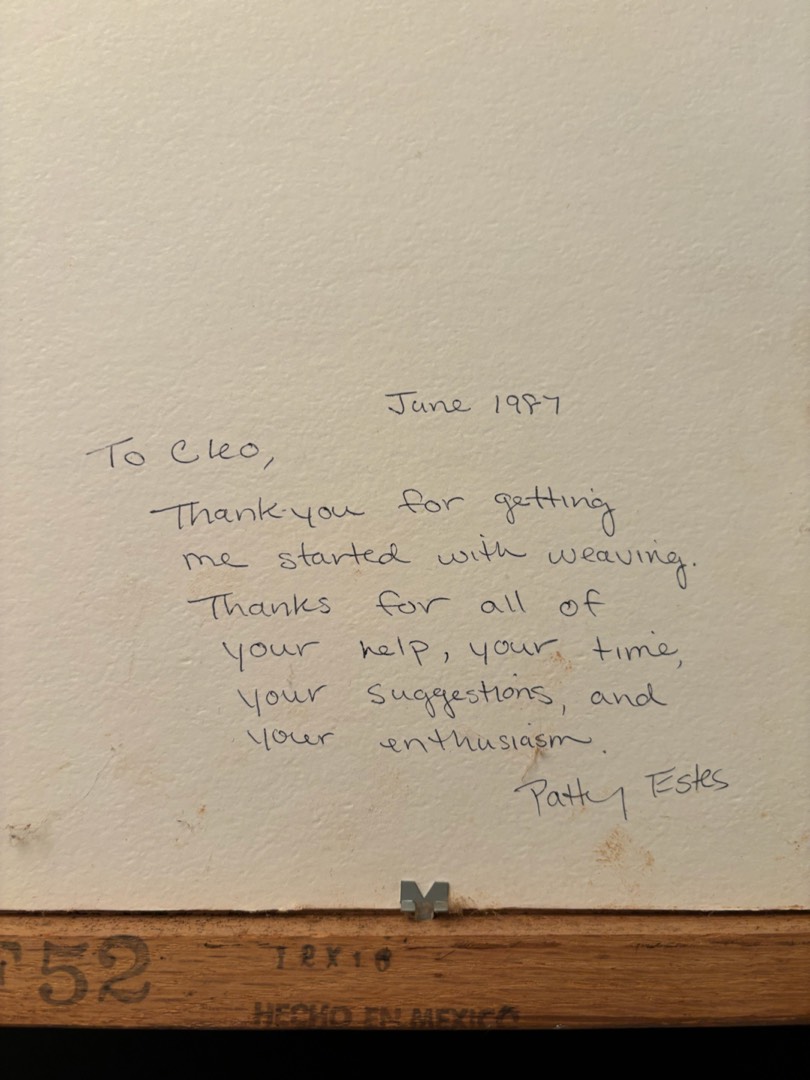 June 1987
To Cleo,
Thank-you for getting
me started with weaving.
Thanks for all of
your help, your time,
your suggestions, and
your enthusiasm.
Patty Estes
52
HECHO EN MEXICO